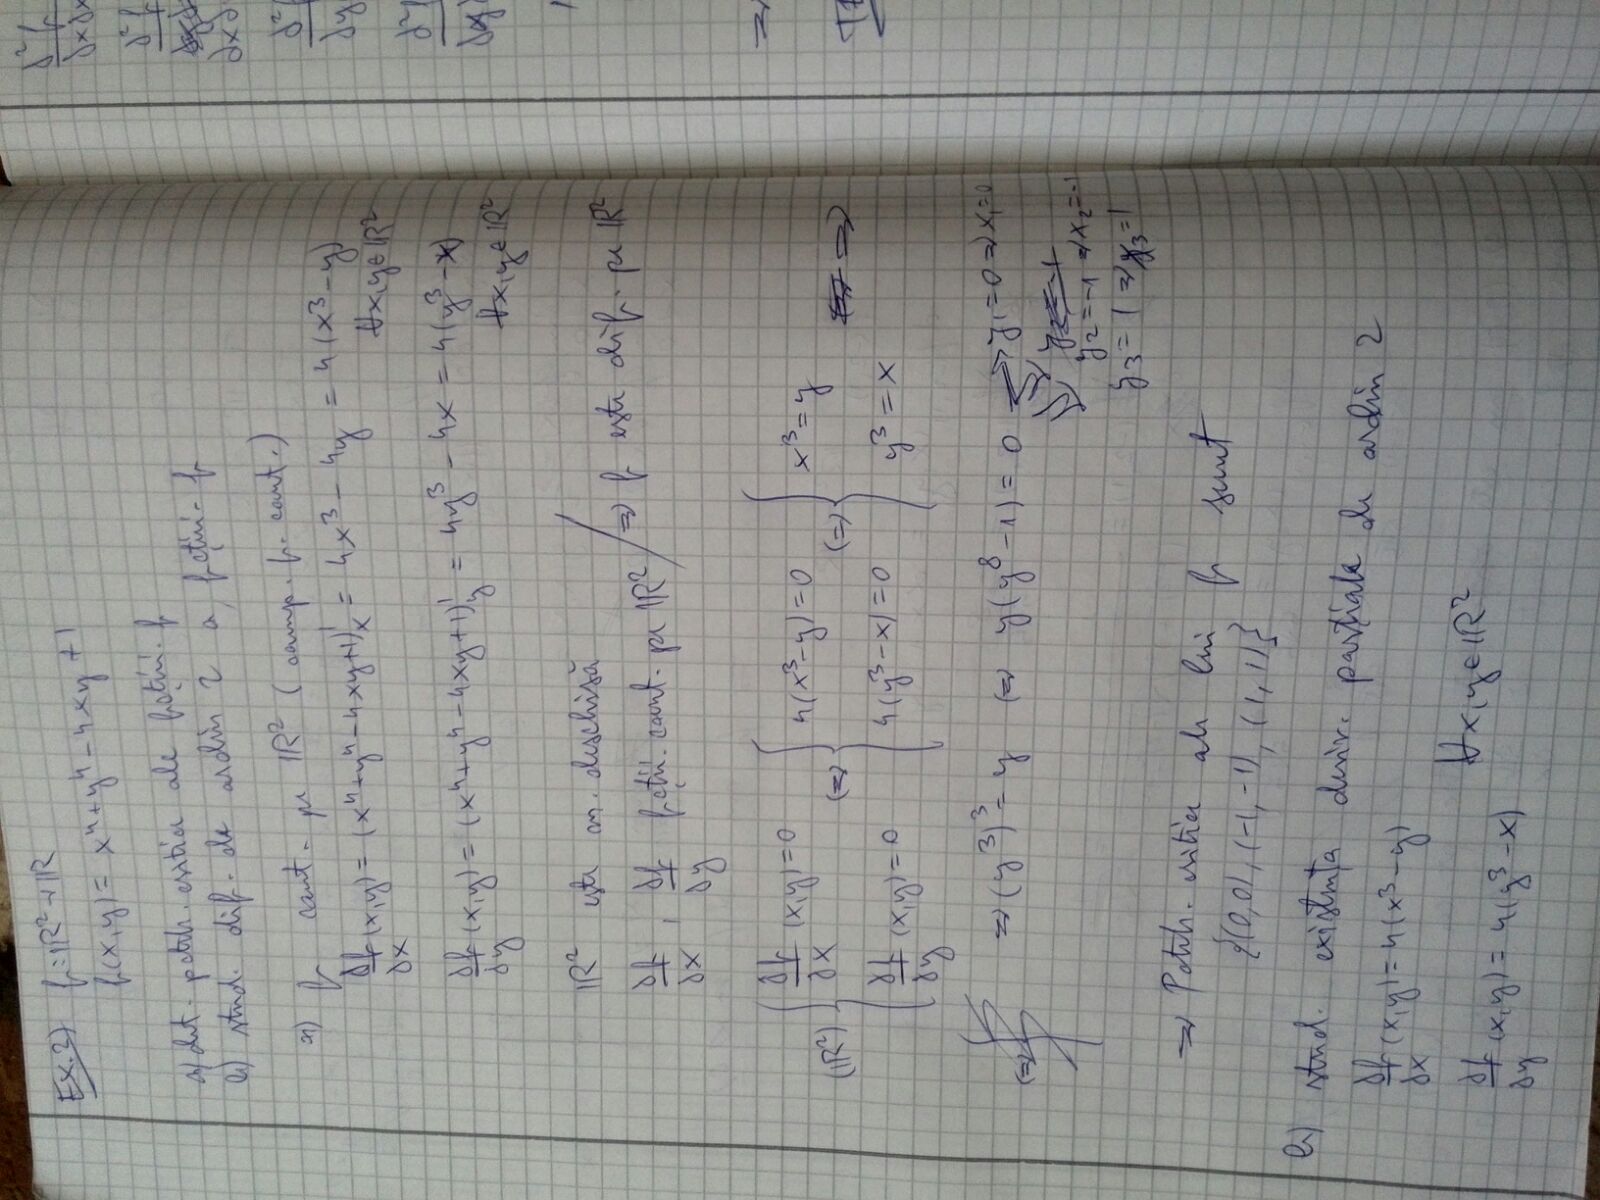 Ex.2) f: ℝ² → ℝ
f(x,y) = x⁴ + y⁴ - 4xy + 1
a) det. pctele. critice ale fcției f
b) stud. dif. de ordin 2 a fcției f
a) f cont. pe ℝ² (comp. f. cont.)
∂f/∂x (x,y) = (x⁴+y⁴-4xy+1)'ₓ = 4x³ - 4y = 4(x³-y)
∀x,y∈ℝ²
∂f/∂y (x,y) = (x⁴+y⁴-4xy+1)'ᵧ = 4y³ - 4x = 4(y³-x)
∀x,y∈ℝ²
ℝ² este m. deschisă
∂f/∂x, ∂f/∂y fcții. cont. pe ℝ² / ⇒ f este dif. pe ℝ²
(ℝ²) { ∂f/∂x (x,y)=0 (⇒) { 4(x³-y)=0 (⇒) { x³=y ⇒
∂f/∂y (x,y)=0 4(y³-x)=0 y³=x
(⇒) ⇒ (y³)³=y (⇒) y(y⁸-1)=0 ⇒ y₁=0 ⇒ x₁=0
y₂=-1 ⇒ x₂=-1
y₃=1 ⇒ y₃=1
⇒ Pctele. critice ale lui f sunt
{(0,0), (-1,-1), (1,1)}
b) stud. existența deriv. parțiale de ordin 2
∂f/∂x (x,y) = 4(x³-y)
∂f/∂y (x,y) = 4(y³-x) ∀x,y∈ℝ²